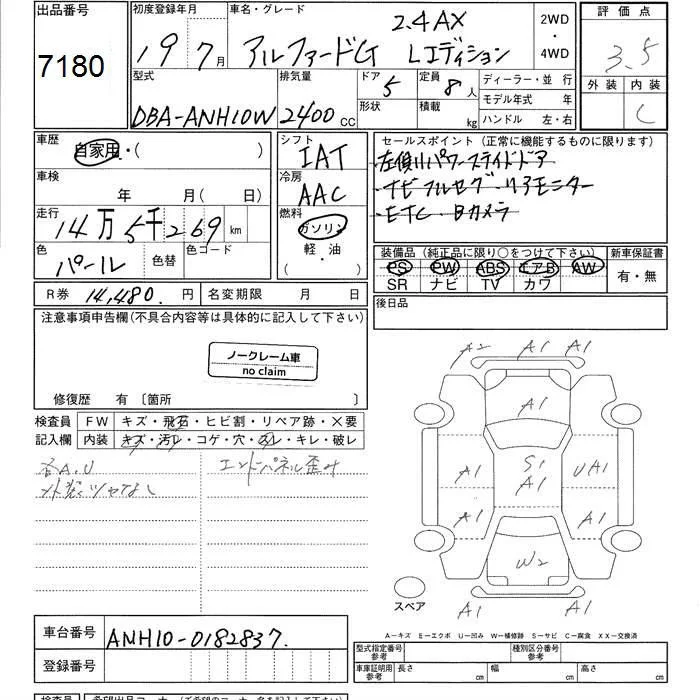 出品番号
7180
初度登録年月
19 7月
車名・グレード
2.4AX
アルファードG Lエディション
2WD
・
4WD
評価点
3.5
外装 内装
C
型式
DBA-ANH10W
排気量
2400cc
ドア 5
形状
定員 8人
積載 kg
ディーラー・並行
モデル年式 年
ハンドル 左・右
車歴
自家用・( )
車検
年 月( 日)
走行
14万5千269km
色
パール
色替
色コード
シフト
IAT
冷房
AAC
燃料
ガソリン
軽・油
( )
セールスポイント(正常に機能するものに限ります)
・左側パワースライドドア
・ナビフルセグ・リアモニター
・ETC・Bカメラ
装備品(純正品に限り○をつけて下さい)
PS PW ABS エアB AW
SR ナビ TV カワ
新車保証書
有・無
R券 14,480.円
名変期限 月 日
後日品
注意事項申告欄(不具合内容等は具体的に記入して下さい)
ノークレーム車
no claim
修復歴 有〔箇所 〕
検査員
記入欄
FW キズ・飛石・ヒビ割・リペア跡・×要
内装 キズ・汚レ・コゲ・穴・スレ・キレ・破レ
各A.U
外装ツヤなし
エンドパネル歪み
A2 A1 A1
A1
A1 S1 UA1
A1
A1 A1
W2
A1 A1
スペア
A－キズ E－エクボ U－凹み W－補修跡 S－サビ C－腐食 XX－交換済
車台番号
ANH10-0182837.
登録番号
型式指定番号
参考
種別区分番号
参考
車庫証明用
参考
長さ cm
幅 cm
高さ cm
検査員
希望出品コーナー(ご希望のコーナー名を記入下さい)